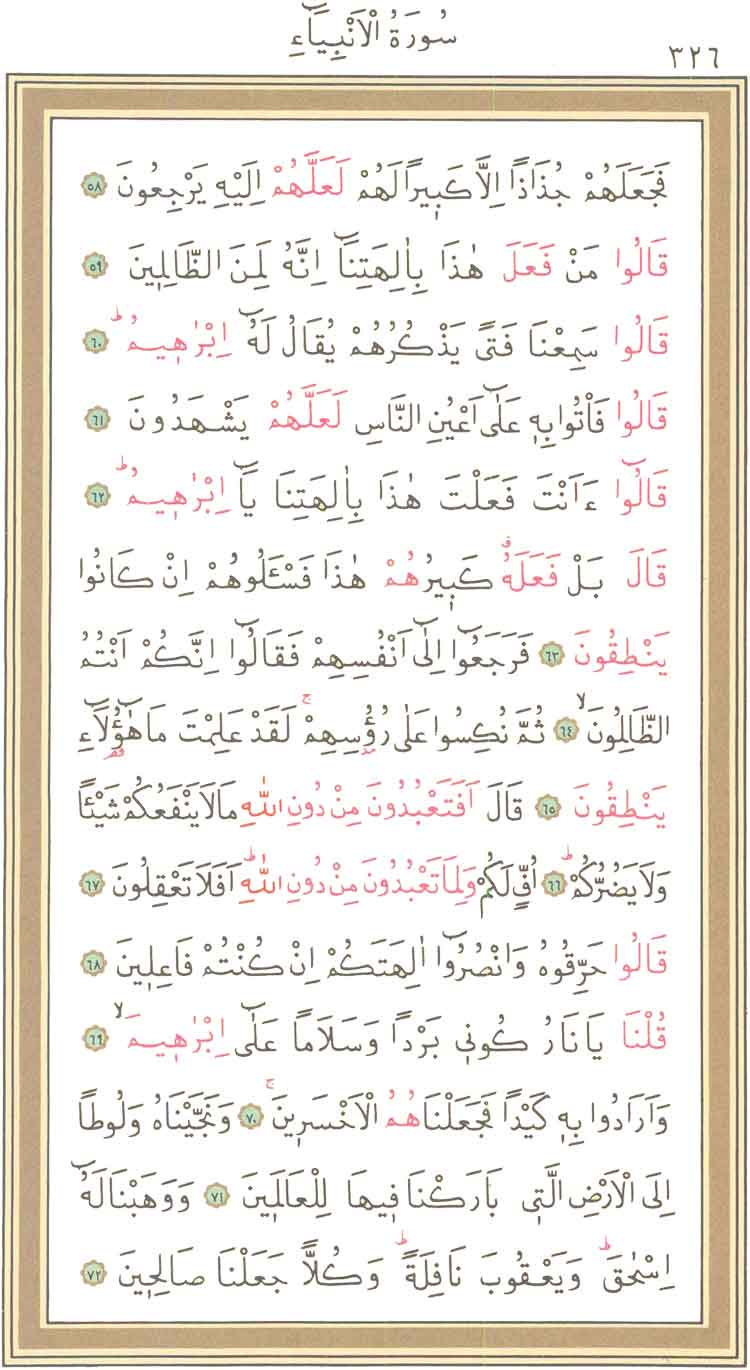 سُورَةُ الْاَنْبِيَٓاءِ
٣٢٦
فَجَعَلَهُمْ جُذَاذًا اِلَّا كَبٖيرًا لَهُمْ لَعَلَّهُمْ اِلَيْهِ يَرْجِعُونَ ٥٨
قَالُوا مَنْ فَعَلَ هٰذَا بِاٰلِهَتِنَٓا اِنَّهُ لَمِنَ الظَّالِمٖينَ ٥٩
قَالُوا سَمِعْنَا فَتًى يَذْكُرُهُمْ يُقَالُ لَهُٓ اِبْرٰهٖيمُ ؕ ٦٠
قَالُوا فَأْتُوا بِهٖ عَلٰٓى اَعْيُنِ النَّاسِ لَعَلَّهُمْ يَشْهَدُونَ ٦١
قَالُٓوا ءَاَنْتَ فَعَلْتَ هٰذَا بِاٰلِهَتِنَا يَٓا اِبْرٰهٖيمُ ؕ ٦٢
قَالَ بَلْ فَعَلَهُ ۗ كَبٖيرُهُمْ هٰذَا فَسْـَٔلُوهُمْ اِنْ كَانُوا
يَنْطِقُونَ ٦٣ فَرَجَعُٓوا اِلٰٓى اَنْفُسِهِمْ فَقَالُٓوا اِنَّكُمْ اَنْتُمُ
الظَّالِمُونَ ۙ ٦٤ ثُمَّ نُكِسُوا عَلٰى رُؤُسِهِمْ ۚ لَقَدْ عَلِمْتَ مَا هٰٓؤُ۬لَٓاءِ
يَنْطِقُونَ ٦٥ قَالَ اَفَتَعْبُدُونَ مِنْ دُونِ اللّٰهِ مَا لَا يَنْفَعُكُمْ شَيْـًٔا
وَلَا يَضُرُّكُمْ ؕ ٦٦ اُفٍّ لَكُمْ وَلِمَا تَعْبُدُونَ مِنْ دُونِ اللّٰهِ ؕ اَفَلَا تَعْقِلُونَ ٦٧
قَالُوا حَرِّقُوهُ وَانْصُرُٓوا اٰلِهَتَكُمْ اِنْ كُنْتُمْ فَاعِلٖينَ ٦٨
قُلْنَا يَا نَارُ كُونٖي بَرْدًا وَسَلَامًا عَلٰٓى اِبْرٰهٖيمَ ۙ ٦٩
وَاَرَادُوا بِهٖ كَيْدًا فَجَعَلْنَاهُمُ الْاَخْسَرٖينَ ۚ ٧٠ وَنَجَّيْنَاهُ وَلُوطًا
اِلَى الْاَرْضِ الَّتٖي بَارَكْنَا فٖيهَا لِلْعَالَمٖينَ ٧١ وَوَهَبْنَا لَهُٓ
اِسْحٰقَ ؕ وَيَعْقُوبَ نَافِلَةً ؕ وَكُلًّا جَعَلْنَا صَالِحٖينَ ٧٢